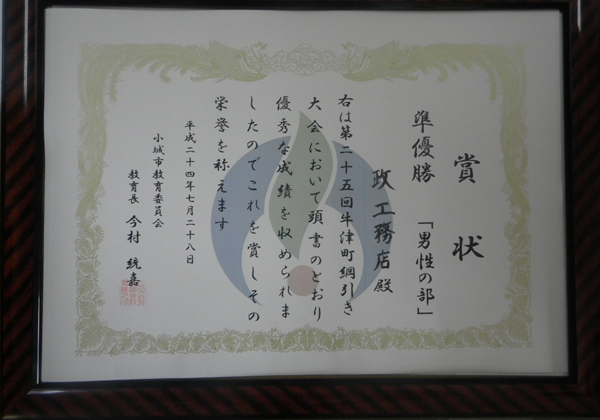 賞状
準優勝 「男性の部」
政工務店殿
右は第二十五回牛津町綱引き
大会において頭書のとおり
優秀な成績を収められま
したのでこれを賞しその
栄誉を称えます
平成二十四年七月二十八日
小城市教育委員会
教育長 今村 統嘉